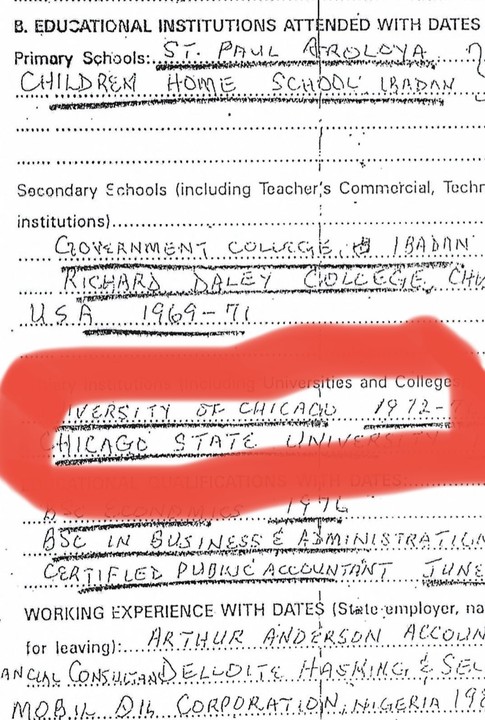 B. EDUCATIONAL INSTITUTIONS ATTENDED WITH DATES
Primary Schools: ST. PAUL AROLOYA
CHILDREN HOME SCHOOL IBADAN
Secondary Schools (including Teacher's Commercial, Techn
institutions)
GOVERNMENT COLLEGE, IBADAN
RICHARD DALEY COLLEGE, CHI
USA 1969-71
Institutions (including Universities and College
IVERSITY OF CHICAGO 1972-
CHICAGO STATE UNIVERSITY
QUALIFICATIONS WITH DATES:
ECONOMICS 1976
BSC IN BUSINESS & ADMINISTRATION
CERTIFIED PUBLIC ACCOUNTANT JUNE
WORKING EXPERIENCE WITH DATES (State employer, na
for leaving): ARTHUR ANDERSON ACCOUN
ANCIAL CONSULTANT DELLOITE HASKING & SEL
MOBIL OIL CORPORATION, NIGERIA 198